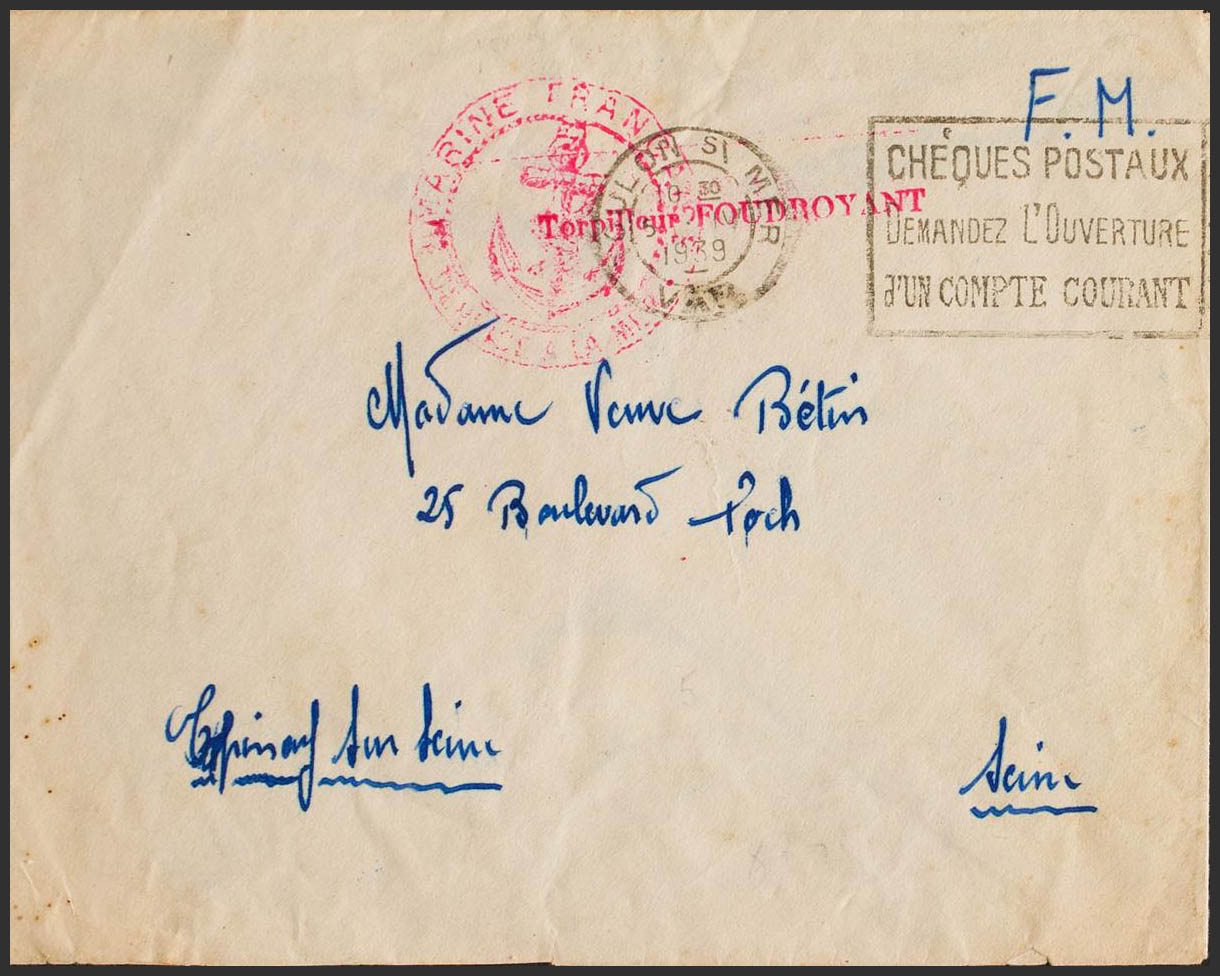 F. M.
MARINE FRANÇ
A LA MER
Torpilleur FOUDROYANT
TOULON S! MER
10 30
1939
VAR
CHÈQUES POSTAUX
DEMANDEZ L'OUVERTURE
d'UN COMPTE COURANT
Madame Veuve Bétin
25 Boulevard Foch
Epinay sur Seine
Seine
5